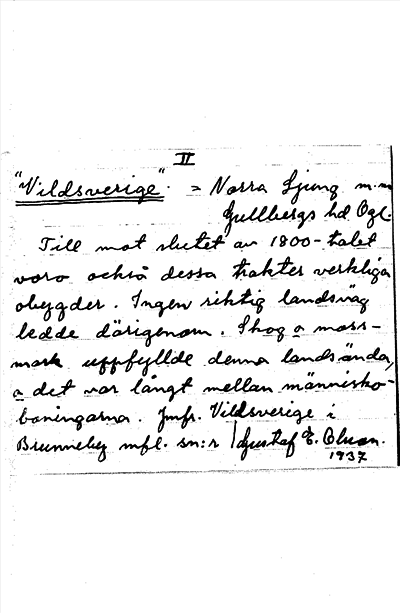 II
"Vildsverige". = Norra Ljung m.m
Gullbergs hd Ögl.
Till mot slutet av 1800-talet
voro också dessa trakter verkliga
obygder. Ingen riktig landsväg
ledde därigenom. Skog o moss-
mark uppfyllde denna landsända,
o det var långt mellan människo-
boningarna. Jmfr. Vildsverige i
Brunneby mfl. sn:r / Gustaf E.
1937